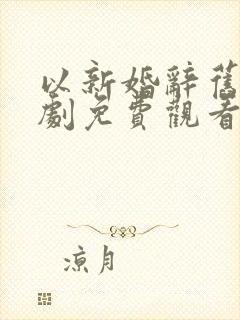 以新婚辭舊
劇免費觀看
涼月